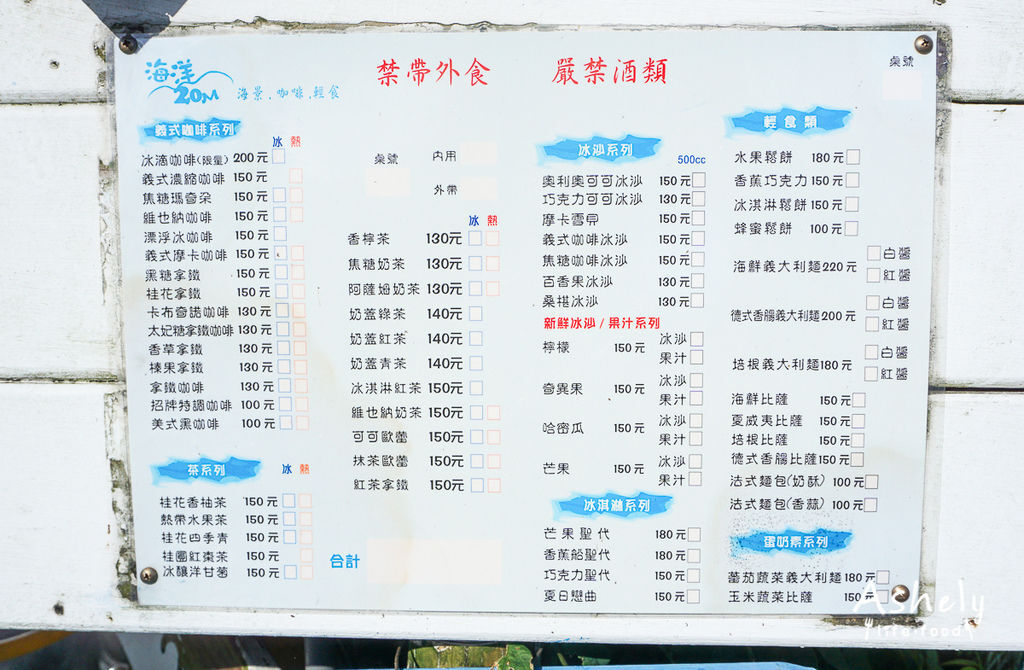 禁帶外食 嚴禁酒類
桌號
海洋
20M 海景.咖啡.輕食
義式咖啡系列
冰 熱
冰滴咖啡(限量) 200元
義式濃縮咖啡 150元
焦糖瑪奇朵 150元
維也納咖啡 150元
漂浮冰咖啡 150元
義式摩卡咖啡 150元
黑糖拿鐵 150元
桂花拿鐵 150元
卡布奇諾咖啡 130元
太妃糖拿鐵咖啡 130元
香草拿鐵 130元
榛果拿鐵 130元
拿鐵咖啡 130元
招牌特調咖啡 100元
美式黑咖啡 100元
茶系列 冰 熱
桂花香柚茶 150元
熱帶水果茶 150元
桂花四季青 150元
桂圓紅棗茶 150元
冰釀洋甘菊 150元
桌號 內用
外帶
冰 熱
香檸茶 130元
焦糖奶茶 130元
阿薩姆奶茶 130元
奶蓋綠茶 140元
奶蓋紅茶 140元
奶蓋青茶 140元
冰淇淋紅茶 150元
維也納奶茶 150元
可可歐蕾 150元
抹茶歐蕾 150元
紅茶拿鐵 150元
合計
冰沙系列 500cc
奧利奧可可冰沙 150元
巧克力可可冰沙 130元
摩卡雪貝 150元
義式咖啡冰沙 150元
焦糖咖啡冰沙 150元
百香果冰沙 130元
桑椹冰沙 130元
新鮮冰沙/果汁系列
檸檬 150元 冰沙
果汁
奇異果 150元 冰沙
果汁
哈密瓜 150元 冰沙
果汁
芒果 150元 冰沙
果汁
冰淇淋系列
芒果聖代 180元
香蕉船聖代 180元
巧克力聖代 150元
夏日戀曲 150元
輕食類
水果鬆餅 180元
香蕉巧克力 150元
冰淇淋鬆餅 150元
蜂蜜鬆餅 100元
海鮮義大利麵 220元 白醬
紅醬
德式香腸義大利麵 200元 白醬
紅醬
培根義大利麵 180元 白醬
紅醬
海鮮比薩 150元
夏威夷比薩 150元
培根比薩 150元
德式香腸比薩 150元
法式麵包(奶酥) 100元
法式麵包(香蒜) 100元
蛋奶素系列
蕃茄蔬菜義大利麵 180元
玉米蔬菜比薩 150元
Ashely
life.food